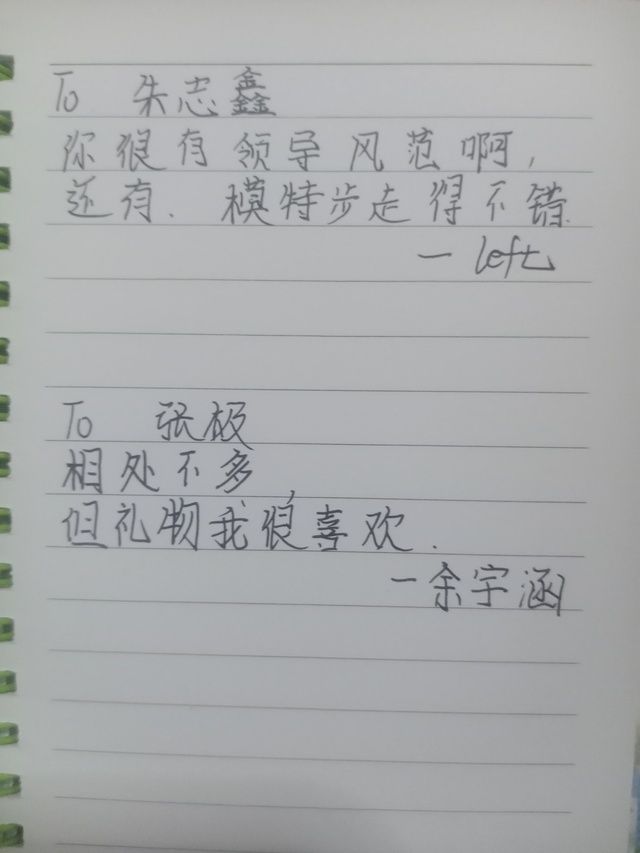 To 朱志鑫
你很有领导风范啊,
还有. 模特步走得不错.
— left
To 张极
相处不多,
但礼物我很喜欢.
—余宇涵